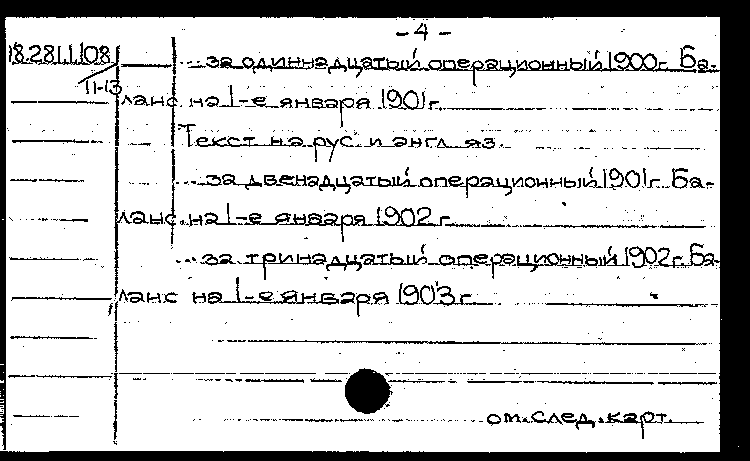 - 4 -
18.281.1.108
11-13
... за одиннадцатый операционный 1900г. Ба-
ланс на 1-е января 1901г.
Текст на рус. и англ. яз.
... за двенадцатый операционный 1901г. Ба-
ланс на 1-е января 1902 г.
... за тринадцатый операционный 1902г. Ба-
ланс на 1-е января 1903г.
см. след. карт.